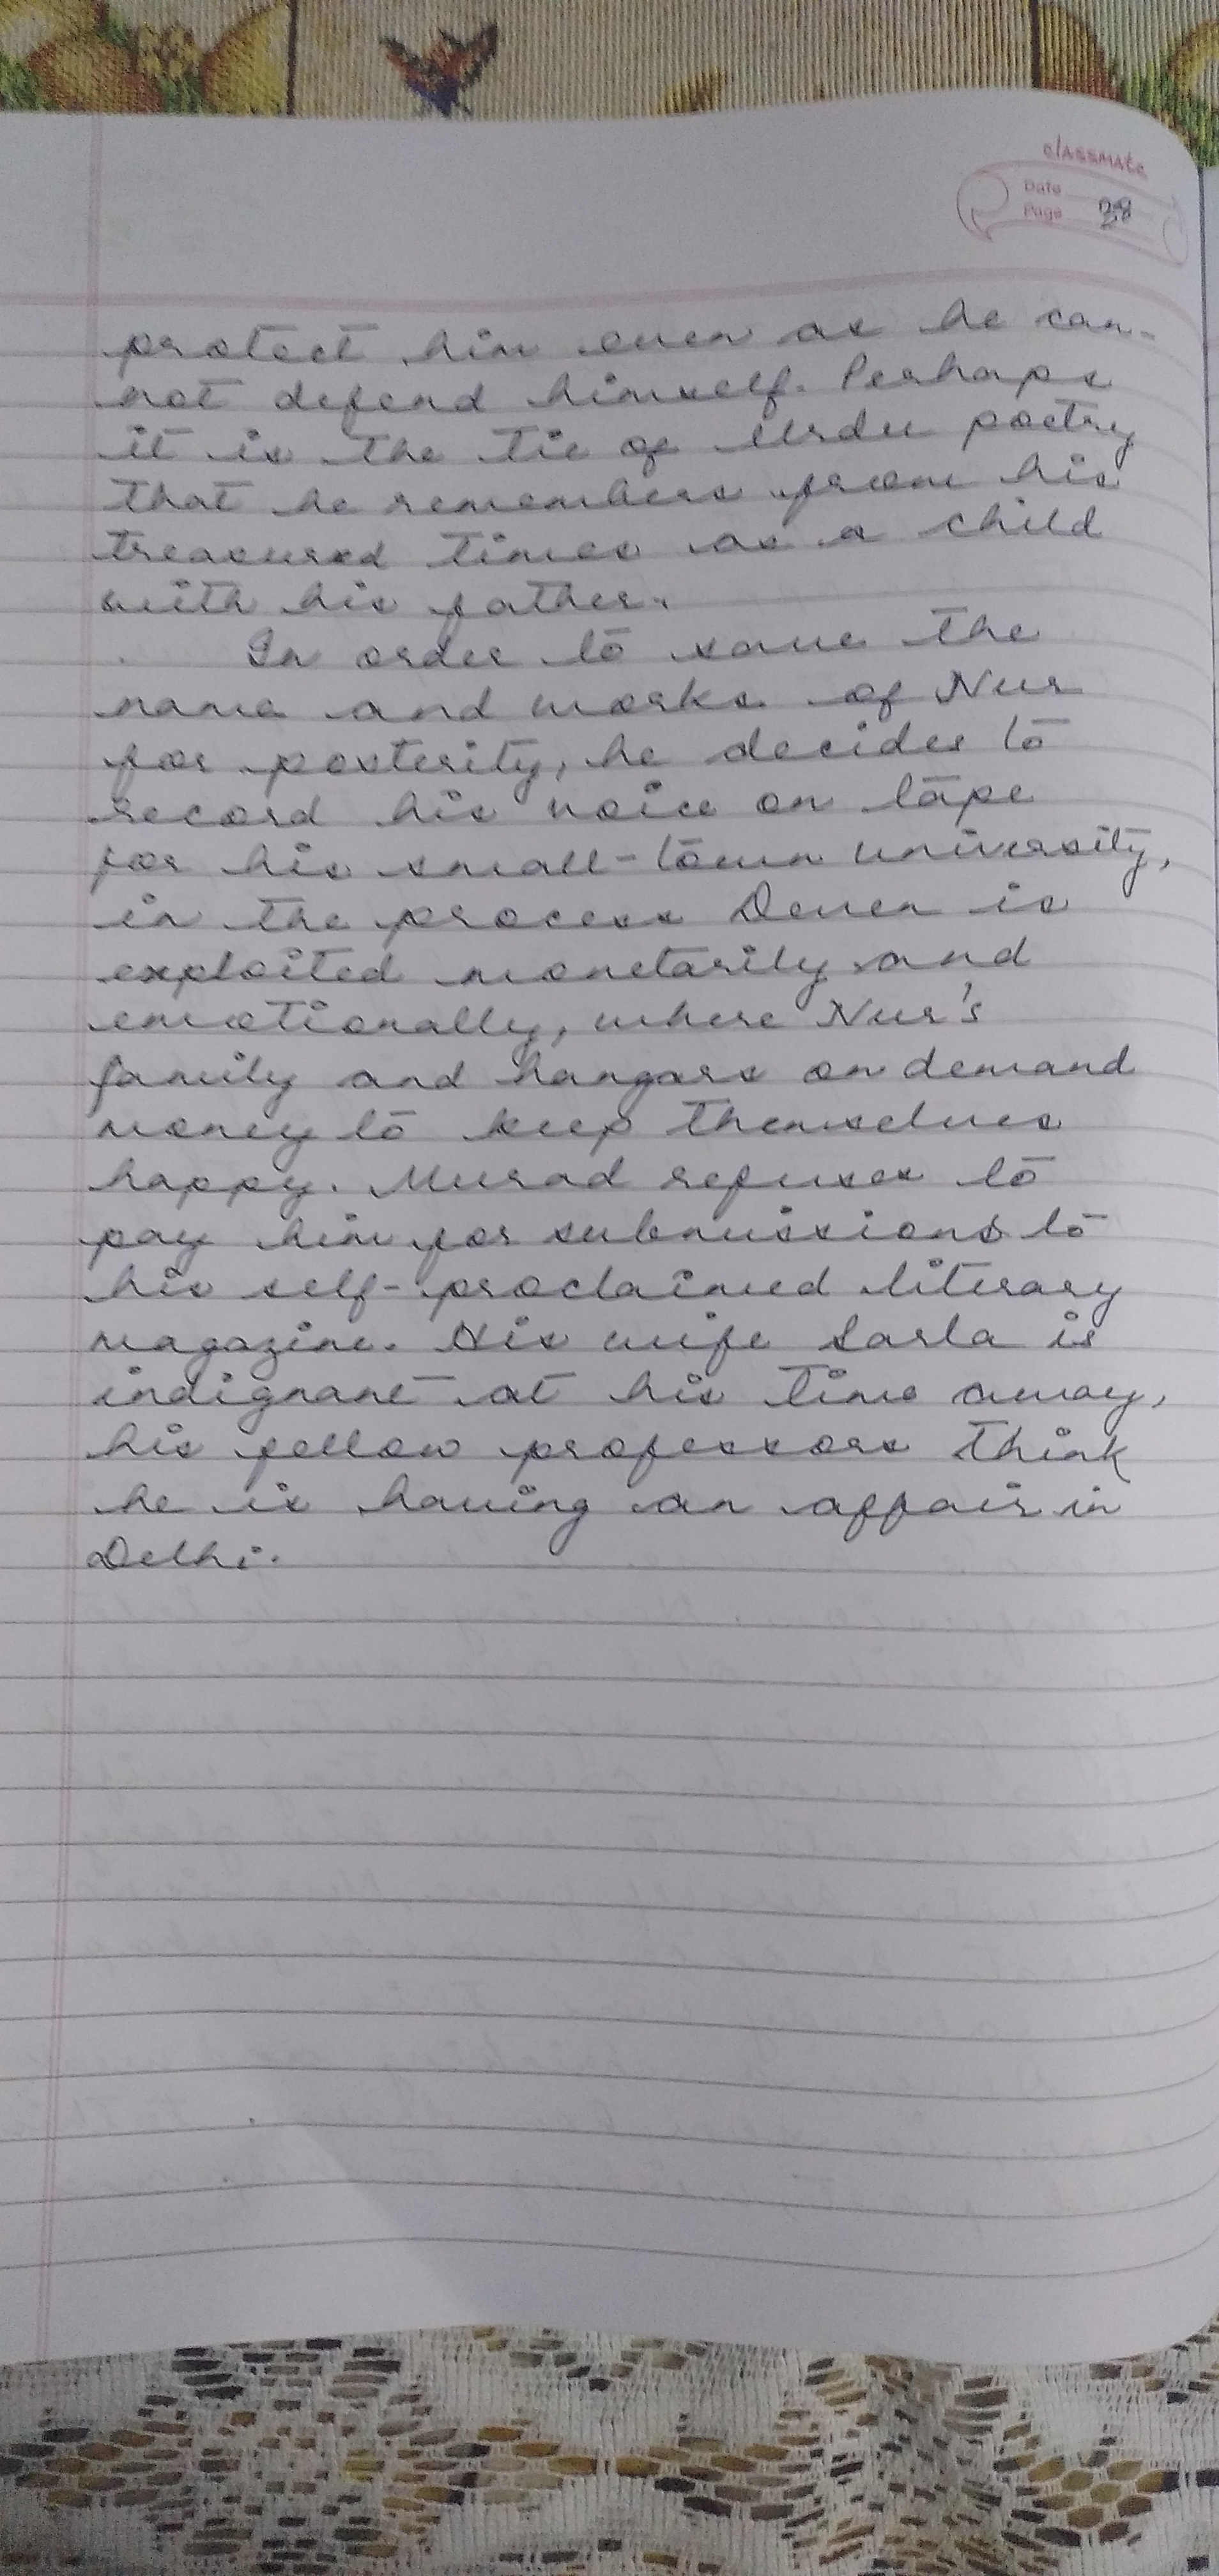 classmate
Date
Page 38
protect him even as he can-
not defend himself. Perhaps
it is the tie of Urdu poetry
that he remembers from his
treasured times as a child
with his father.
In order to save the
name and works of Nur
for posterity, he decides to
record his voice on tape
for his small-town university,
in the process Deven is
exploited monetarily and
emotionally, where Nur's
family and hangars on demand
money to keep themselves
happy. Murad refuses to
pay him for submissions to
his self-proclaimed literary
magazine. His wife Sarla is
indignant at his time away,
his fellow professors think
he is having an affair in
Delhi.